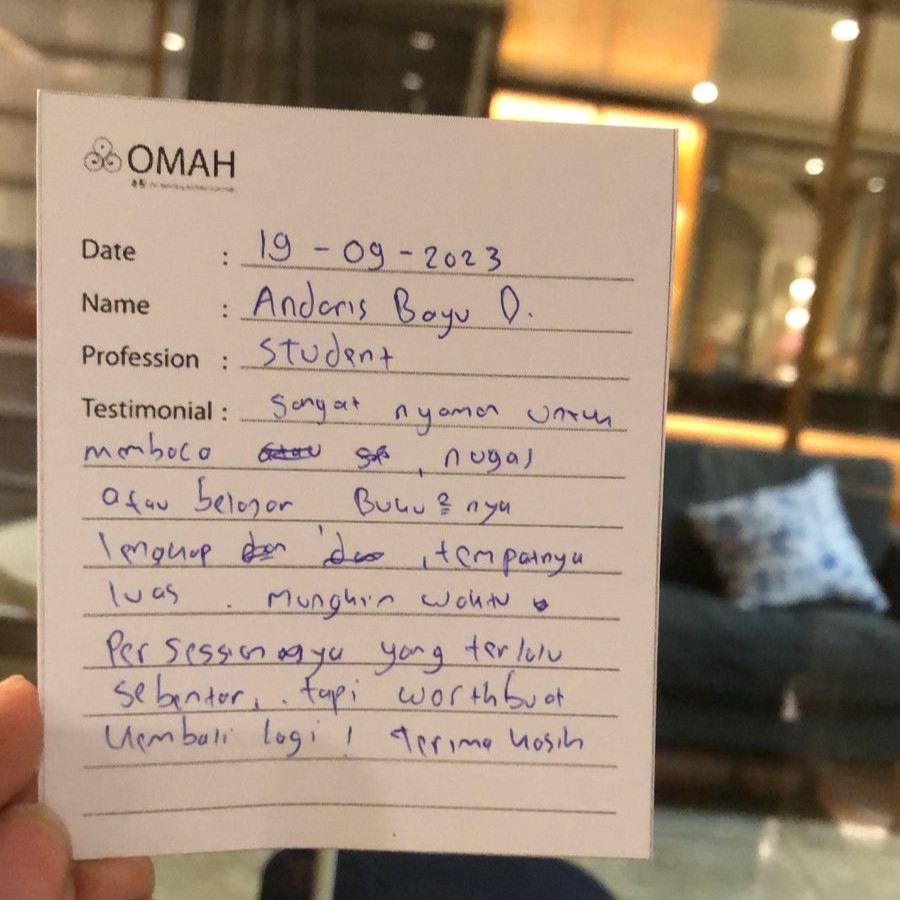 OMAH
Date : 19 - 09 - 2023
Name : Andaris Bayu D.
Profession : Student
Testimonial : Sangat nyaman untuk
membaca , nugas
atau belajar Buku2 nya
lengkap , tempatnya
luas . Mungkin waktu
Per sessionnya yang terlalu
sebentar, . tapi worthbuat
kembali lagi ! Terima kasih